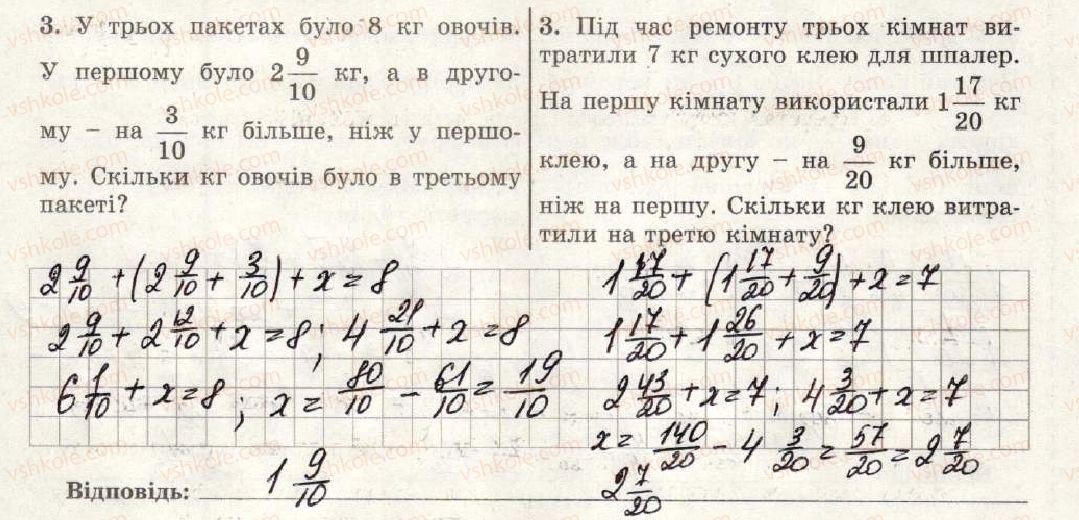 3. У трьох пакетах було 8 кг овочів.
У першому було 2 9/10 кг, а в друго-
му – на 3/10 кг більше, ніж у першо-
му. Скільки кг овочів було в третьому
пакеті?
2 9/10 + (2 9/10 + 3/10) + x = 8
2 9/10 + 2 12/10 + x = 8; 4 21/10 + x = 8
6 1/10 + x = 8; x = 80/10 − 61/10 = 19/10
3. Під час ремонту трьох кімнат ви-
тратили 7 кг сухого клею для шпалер.
На першу кімнату використали 1 17/20 кг
клею, а на другу – на 9/20 кг більше,
ніж на першу. Скільки кг клею витра-
тили на третю кімнату?
1 17/20 + (1 17/20 + 9/20) + x = 7
1 17/20 + 1 26/20 + x = 7
2 43/20 + x = 7; 4 3/20 + x = 7
x = 140/20 − 4 3/20 = 57/20 = 2 7/20
Відповідь: 1 9/10 2 7/20
vshkole.com